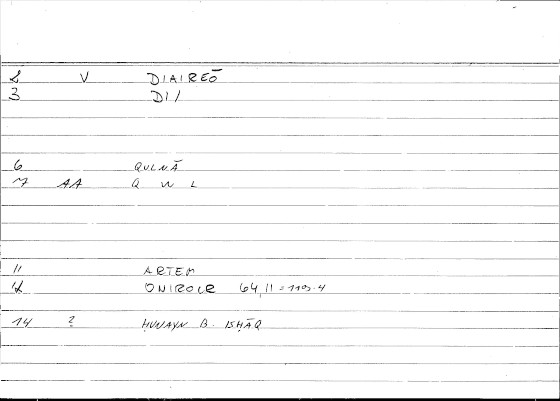 2 V DIAIREŌ
3 DI/
6 QULNĀ
7 AA Q W L
11 ARTEM
12 ONIROCR 64,11 = 119,4
14 ? ḤUNAYN B. ISḤĀQ